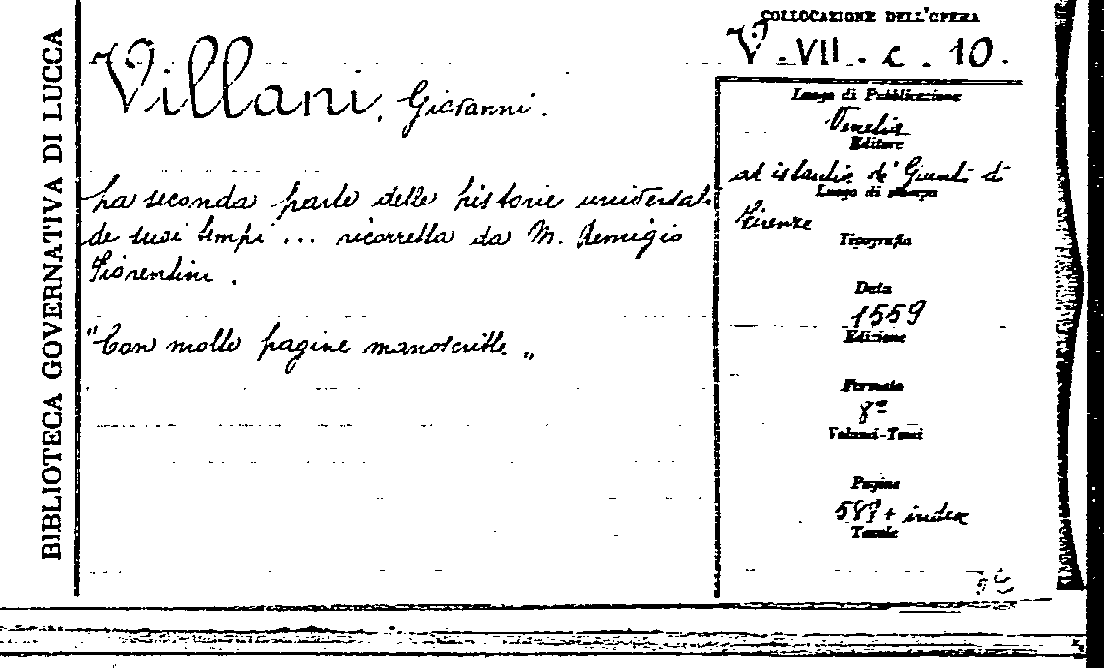 BIBLIOTECA GOVERNATIVA DI LUCCA
COLLOCAZIONE DELL'OPERA
V. VII. c. 10.
Villani, Giovanni.
La seconda parte delle historie universali
de suoi tempi ... ricorretta da M. Remigio
Fiorentini.
"Con molte pagine manoscritte"
Luogo di Pubblicazione
Venezia
Editore
ad istantia de' Giunti di
Luogo di stampa
Firenze
Tipografia
Data
1559
Edizione
Formato
8º
Volumi-Tomi
Pagine
+ index
Tavole